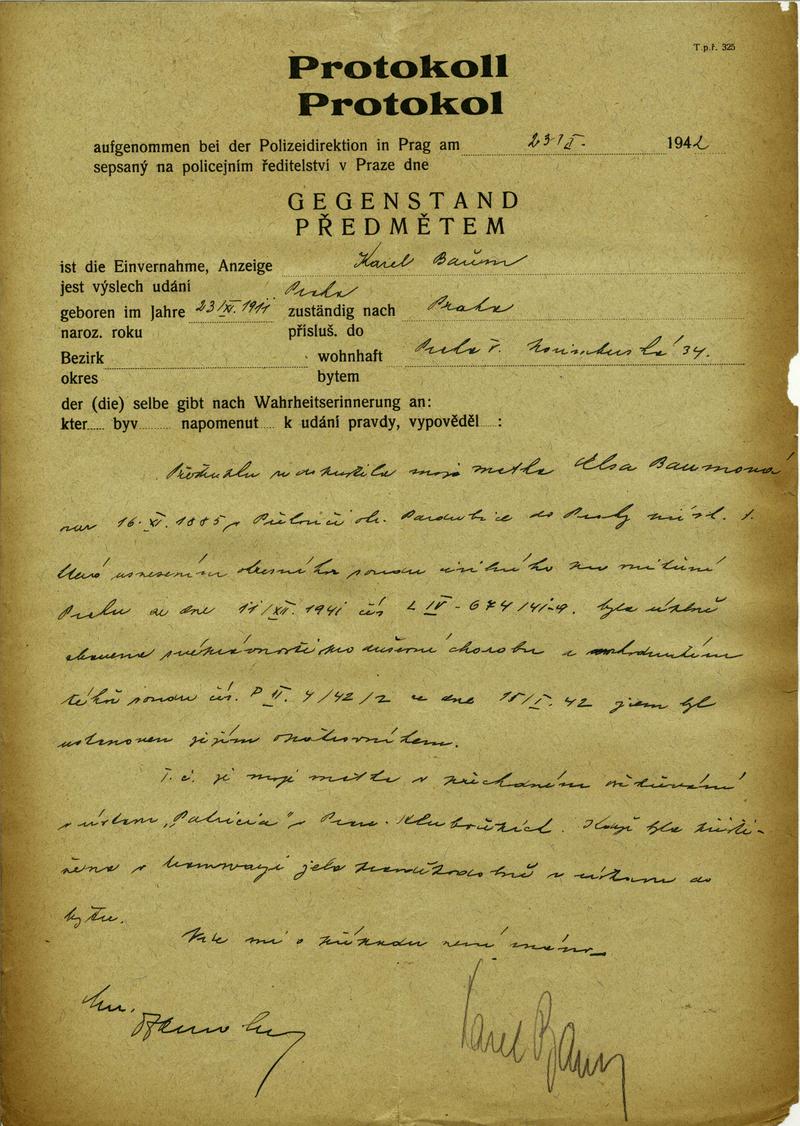 T.p.ř. 325
Protokoll
Protokol
aufgenommen bei der Polizeidirektion in Prag am 23/II. 1942
sepsaný na policejním ředitelství v Praze dne
GEGENSTAND
PŘEDMĚTEM
ist die Einvernahme, Anzeige Karel Baum
jest výslech udání
geboren im Jahre 23/XI. 1911 Praha zuständig nach Praha
naroz. roku přísluš. do
Bezirk wohnhaft Praha V. 34.
okres bytem
der (die) selbe gibt nach Wahrheitserinnerung an:
kter byv napomenut k udání pravdy, vypověděl :
moje matka Elsa Baumová
nar 16. XI. 1885 v ok. Pardubice do Prahy
usnesením okresního soudu civilního pro vnitřní
Prahu ze dne 11/XII. 1941 čís L IV - 674/41-9. byla úplně
zbavena svéprávnosti pro duševní chorobu a
téhož soudu čís. P II. 4/42/2 ze dne 15/I. 42 jsem byl
ustanoven jejím opatrovníkem.
T. č. je moje matka v ošetřování
v ústavu „Patricia“ v Praze - Hlubočepích. Když byla
v tramvaji jela z ústavu do
bytu.
Více mi o není známo
Karel Baum